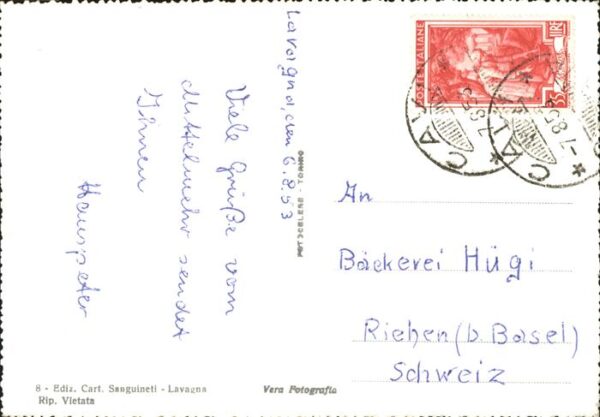 Lavagna, den 6.8.53
Viele Grüße vom
Mittelmehr sendet
Ihnen
Hanspeter
POSTE ITALIANE
LIRE
35
-7.8.53
FOTOCELERE - TORINO
An
Bäckerei Hügi
Riehen (b. Basel)
Schweiz
8 - Ediz. Cart. Sanguineti - Lavagna
Rip. Vietata
Vera Fotografia